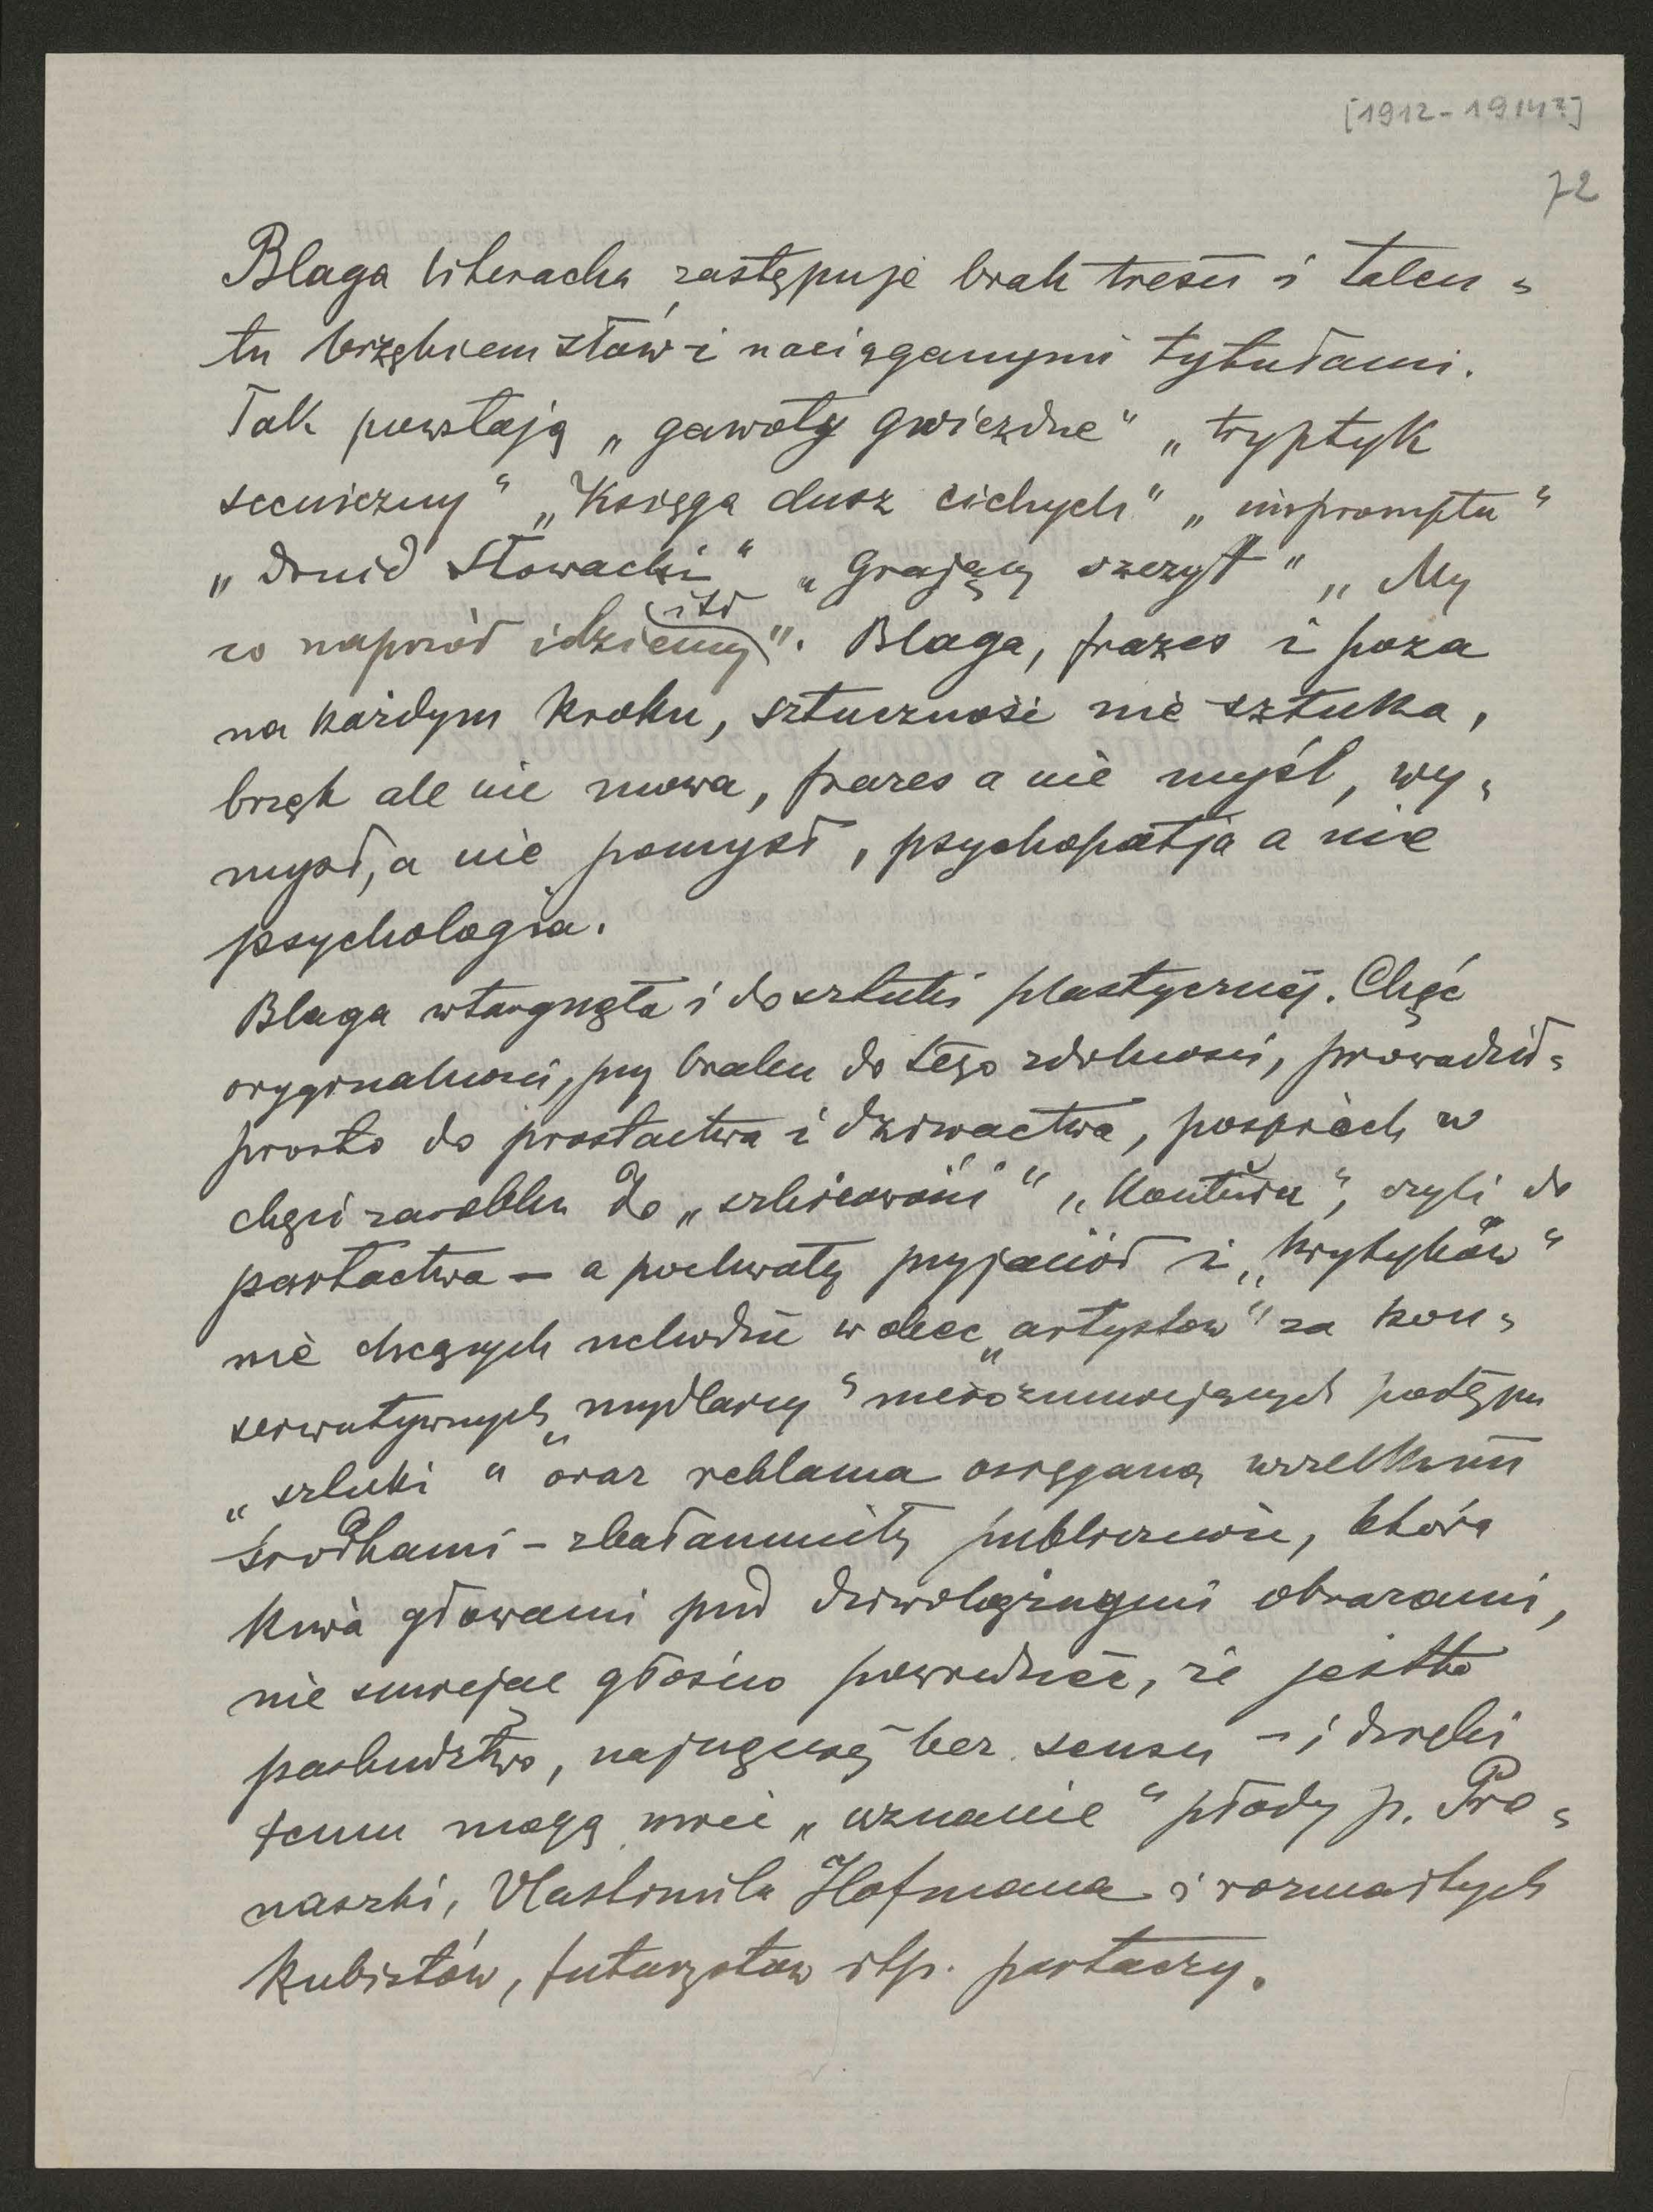 [1912-1914?]
72
Blaga literacka zastępuje brak treści i talen-
tu brzękiem słów i naciąganymi tytułami.
Tak powstają „gawoty gwiezdne" „tryptyk
sceniczny" „Księga dusz cichych" „impromptu"
„Druid Słowacki" „Grający szczyt" „My
itd
co naprzód idziemy". Blaga, frazes i poza
na każdym kroku, sztuczność nie sztuka,
brzęk ale nie mowa, frazes a nie myśl, wy-
mysł, a nie pomysł, psychopatja a nie
psychologia.
Blaga wtargnęła i do sztuki plastycznej. Chęć
oryginalności, przy braku do tego zdolności, prowadzi
prosto do prostactwa i dziwactwa, pospiech w
chęci zarobku do „szkicowości" „konturu", czyli do
partactwa — a pochwały przyjaciół i „krytyków"
nie chcących uchodzić wobec „artystów" za kon-
serwatywnych „mydlarzy" nierozumiejących postępu
„sztuki" oraz reklama osiągana wszelkimi
środkami - zbałamuciły publiczność, która
kiwa głowami pod dziwolążnymi obrazami,
nie smiejąc głośno powiedzieć, że jestto
paskudztwo, najczęściej bez sensu - i dzięki
temu mogą mieć „uznanie" płody p. Pro-
naszki, Vlastimila Hofmana i rozmaitych
kubistów, futurystów itp. partaczy.